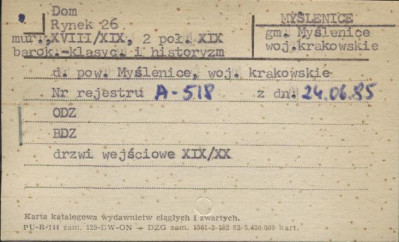 Dom
Rynek 26
mur., XVIII/XIX, 2 poł. XIX
barok.-klasyc. i historyzm
MYŚLENICE
gm. Myślenice
woj. krakowskie
d. pow. Myślenice, woj. krakowskie
Nr rejestru A-518 z dn. 24.06.85
ODZ
BDZ
drzwi wejściowe XIX/XX
Karta katalogowa wydawnictw ciągłych i zwartych.
PU-B-144 zam. 129-DW-ON — DZG zam.